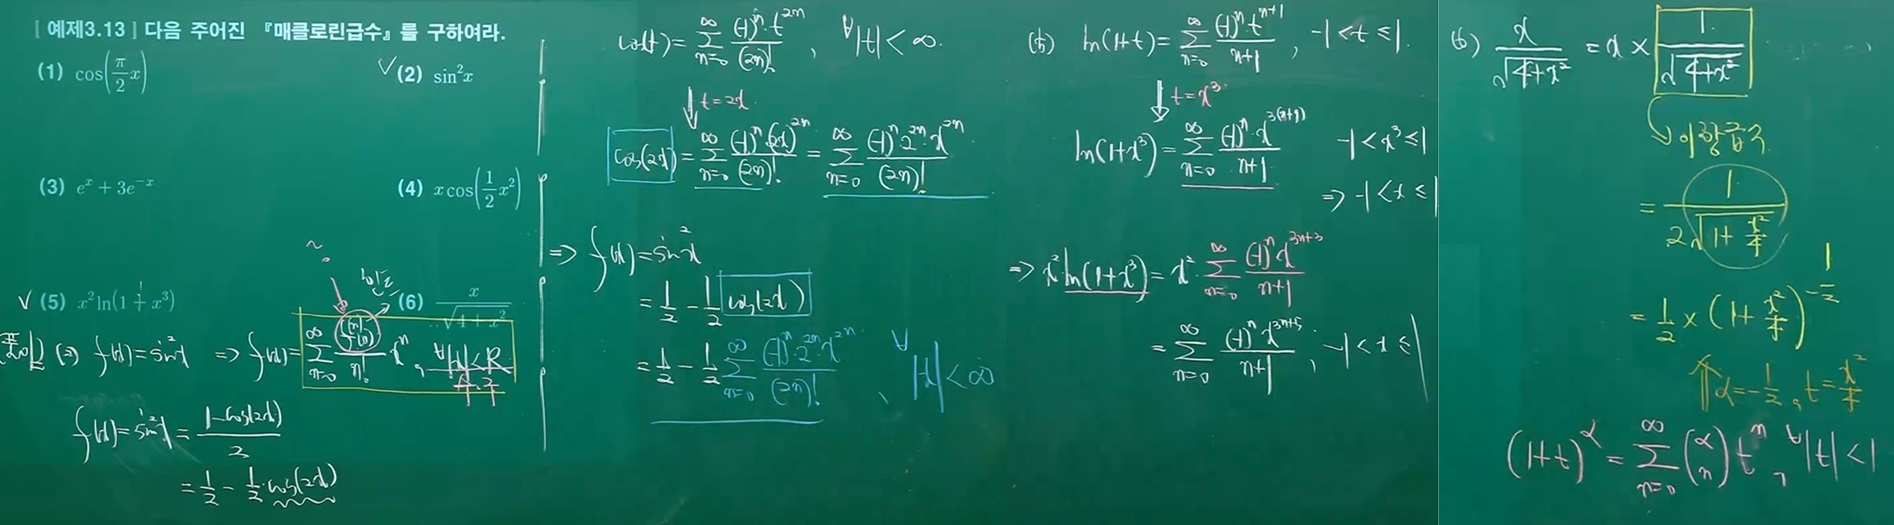 [예제3.13] 다음 주어진 『매클로린급수』를 구하여라.
(1) cos(π/2 x)
✓(2) sin²x
(3) eˣ + 3e⁻ˣ
(4) x cos(1/2 x²)
✓(5) x² ln(1 + x³)
(6) x/√(4 + x²)
풀이) f(x) = sin²x ⇒ f(x) = ∑_{n=0}^{∞} f⁽ⁿ⁾(0)/n! · xⁿ, ∀|x| < R
f(x) = sin²x = (1 - cos(2x))/2
= 1/2 - 1/2 · cos(2x)
cos(t) = ∑_{n=0}^{∞} (-1)ⁿ t²ⁿ/(2n)!, ∀|t| < ∞.
↓ t = 2x
cos(2x) = ∑_{n=0}^{∞} (-1)ⁿ (2x)²ⁿ/(2n)! = ∑_{n=0}^{∞} (-1)ⁿ · 2²ⁿ · x²ⁿ/(2n)!
⇒ f(x) = sin²x
= 1/2 - 1/2 cos(2x)
= 1/2 - 1/2 ∑_{n=0}^{∞} (-1)ⁿ · 2²ⁿ · x²ⁿ/(2n)!, ∀|x| < ∞
(5) ln(1+t) = ∑_{n=0}^{∞} (-1)ⁿ t^{n+1}/(n+1), -1 < t ≤ 1.
↓ t = x³
ln(1+x³) = ∑_{n=0}^{∞} (-1)ⁿ · x^{3(n+1)}/(n+1) -1 < x³ ≤ 1
⇒ -1 < x ≤ 1
⇒ x² ln(1+x³) = x² · ∑_{n=0}^{∞} (-1)ⁿ x^{3n+3}/(n+1)
= ∑_{n=0}^{∞} (-1)ⁿ x^{3n+5}/(n+1), -1 < x ≤ 1
(6) x/√(4+x²) = x × 1/√(4+x²)
이항급수
= 1/(2√(1 + x²/4))
= 1/2 × (1 + x²/4)^{-1/2}
⇑ α = -1/2, t = x²/4
(1+t)^α = ∑_{n=0}^{∞} (α n) tⁿ, ∀|t| < 1